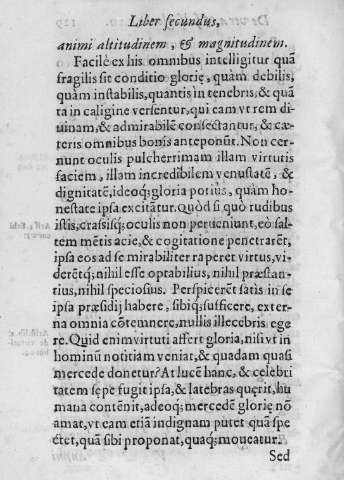 Liber secundus,
animi altitudinem, & magnitudinem.
Facilè ex his omnibus intelligitur quã
fragilis sit conditio glorię, quàm debilis,
quàm instabilis, quantis in tenebris, & quã
ta in caligine versentur, qui eam vt rem di
uinam, & admirabilẽ consectantur, & cæ-
teris omnibus bonis anteponũt. Non cer-
nunt oculis pulcherrimam illam virtutis
faciem, illam incredibilem venustatẽ, &
dignitatẽ, ideoq; gloria potiùs, quàm ho-
nestate ipsa excitãtur. Quòd si quò rudibus
istis, crassisq; oculis non perueniunt, eò sal-
tem mẽtis acie, & cogitatione penetrarẽt,
ipsa eos ad se mirabiliter raperet virtus, vi-
derẽtq; nihil esse optabilius, nihil præstan-
tius, nihil speciosius. Perspicerẽt satis in se
ipsa præsidij habere, sibiq; sufficere, exter-
na omnia cõtemnere, nullis illecebris ege
re. Quid enim virtuti affert gloria, nisi vt in
hominũ notitiam veniat, & quadam quasi
mercede donetur? At lucẽ hanc, & celebri
tatem sępe fugit ipsa, & latebras quęrit, hu
mana contẽnit, adeoq; mercedẽ glorię nõ
amat, vt eam etiã indignam putet quã spe
ctet, quã sibi proponat, quaq; moueatur.
Sed